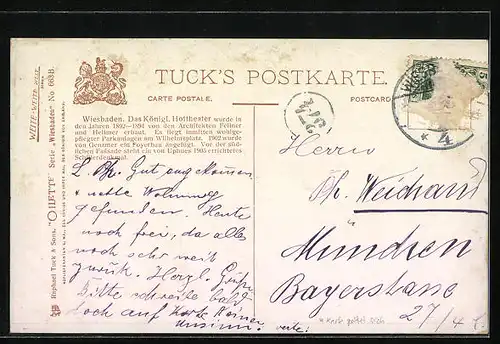 TUCK'S POSTKARTE.
CARTE POSTALE.
POSTCARD
Wiesbaden. Das Königl. Hoftheater wurde in
den Jahren 1892—1894 von den Architekten Fellner
und Helmer erbaut. Es liegt inmitten wohlge-
pflegter Parkanlagen am Wilhelmsplatz. 1902 wurde
von Genzmer ein Foyerbau angefügt. Vor der süd-
lichen Fassade steht ein von Uphues 1905 errichtetes
Schillerdenkmal.
L. Ph. Gut angekommen
+ nette Wohnung
gefunden. Heute
noch frei, da alles
noch sehr weit
zurück. Herzl. Grüße
Bitte schreibe bald
doch auf Karte
Herrn
Ph. Weichand
München
Bayerstrasse
27/4
Raphael Tuck & Sons' "OILETTE" Serie „Wiesbaden“ No 663B.
4